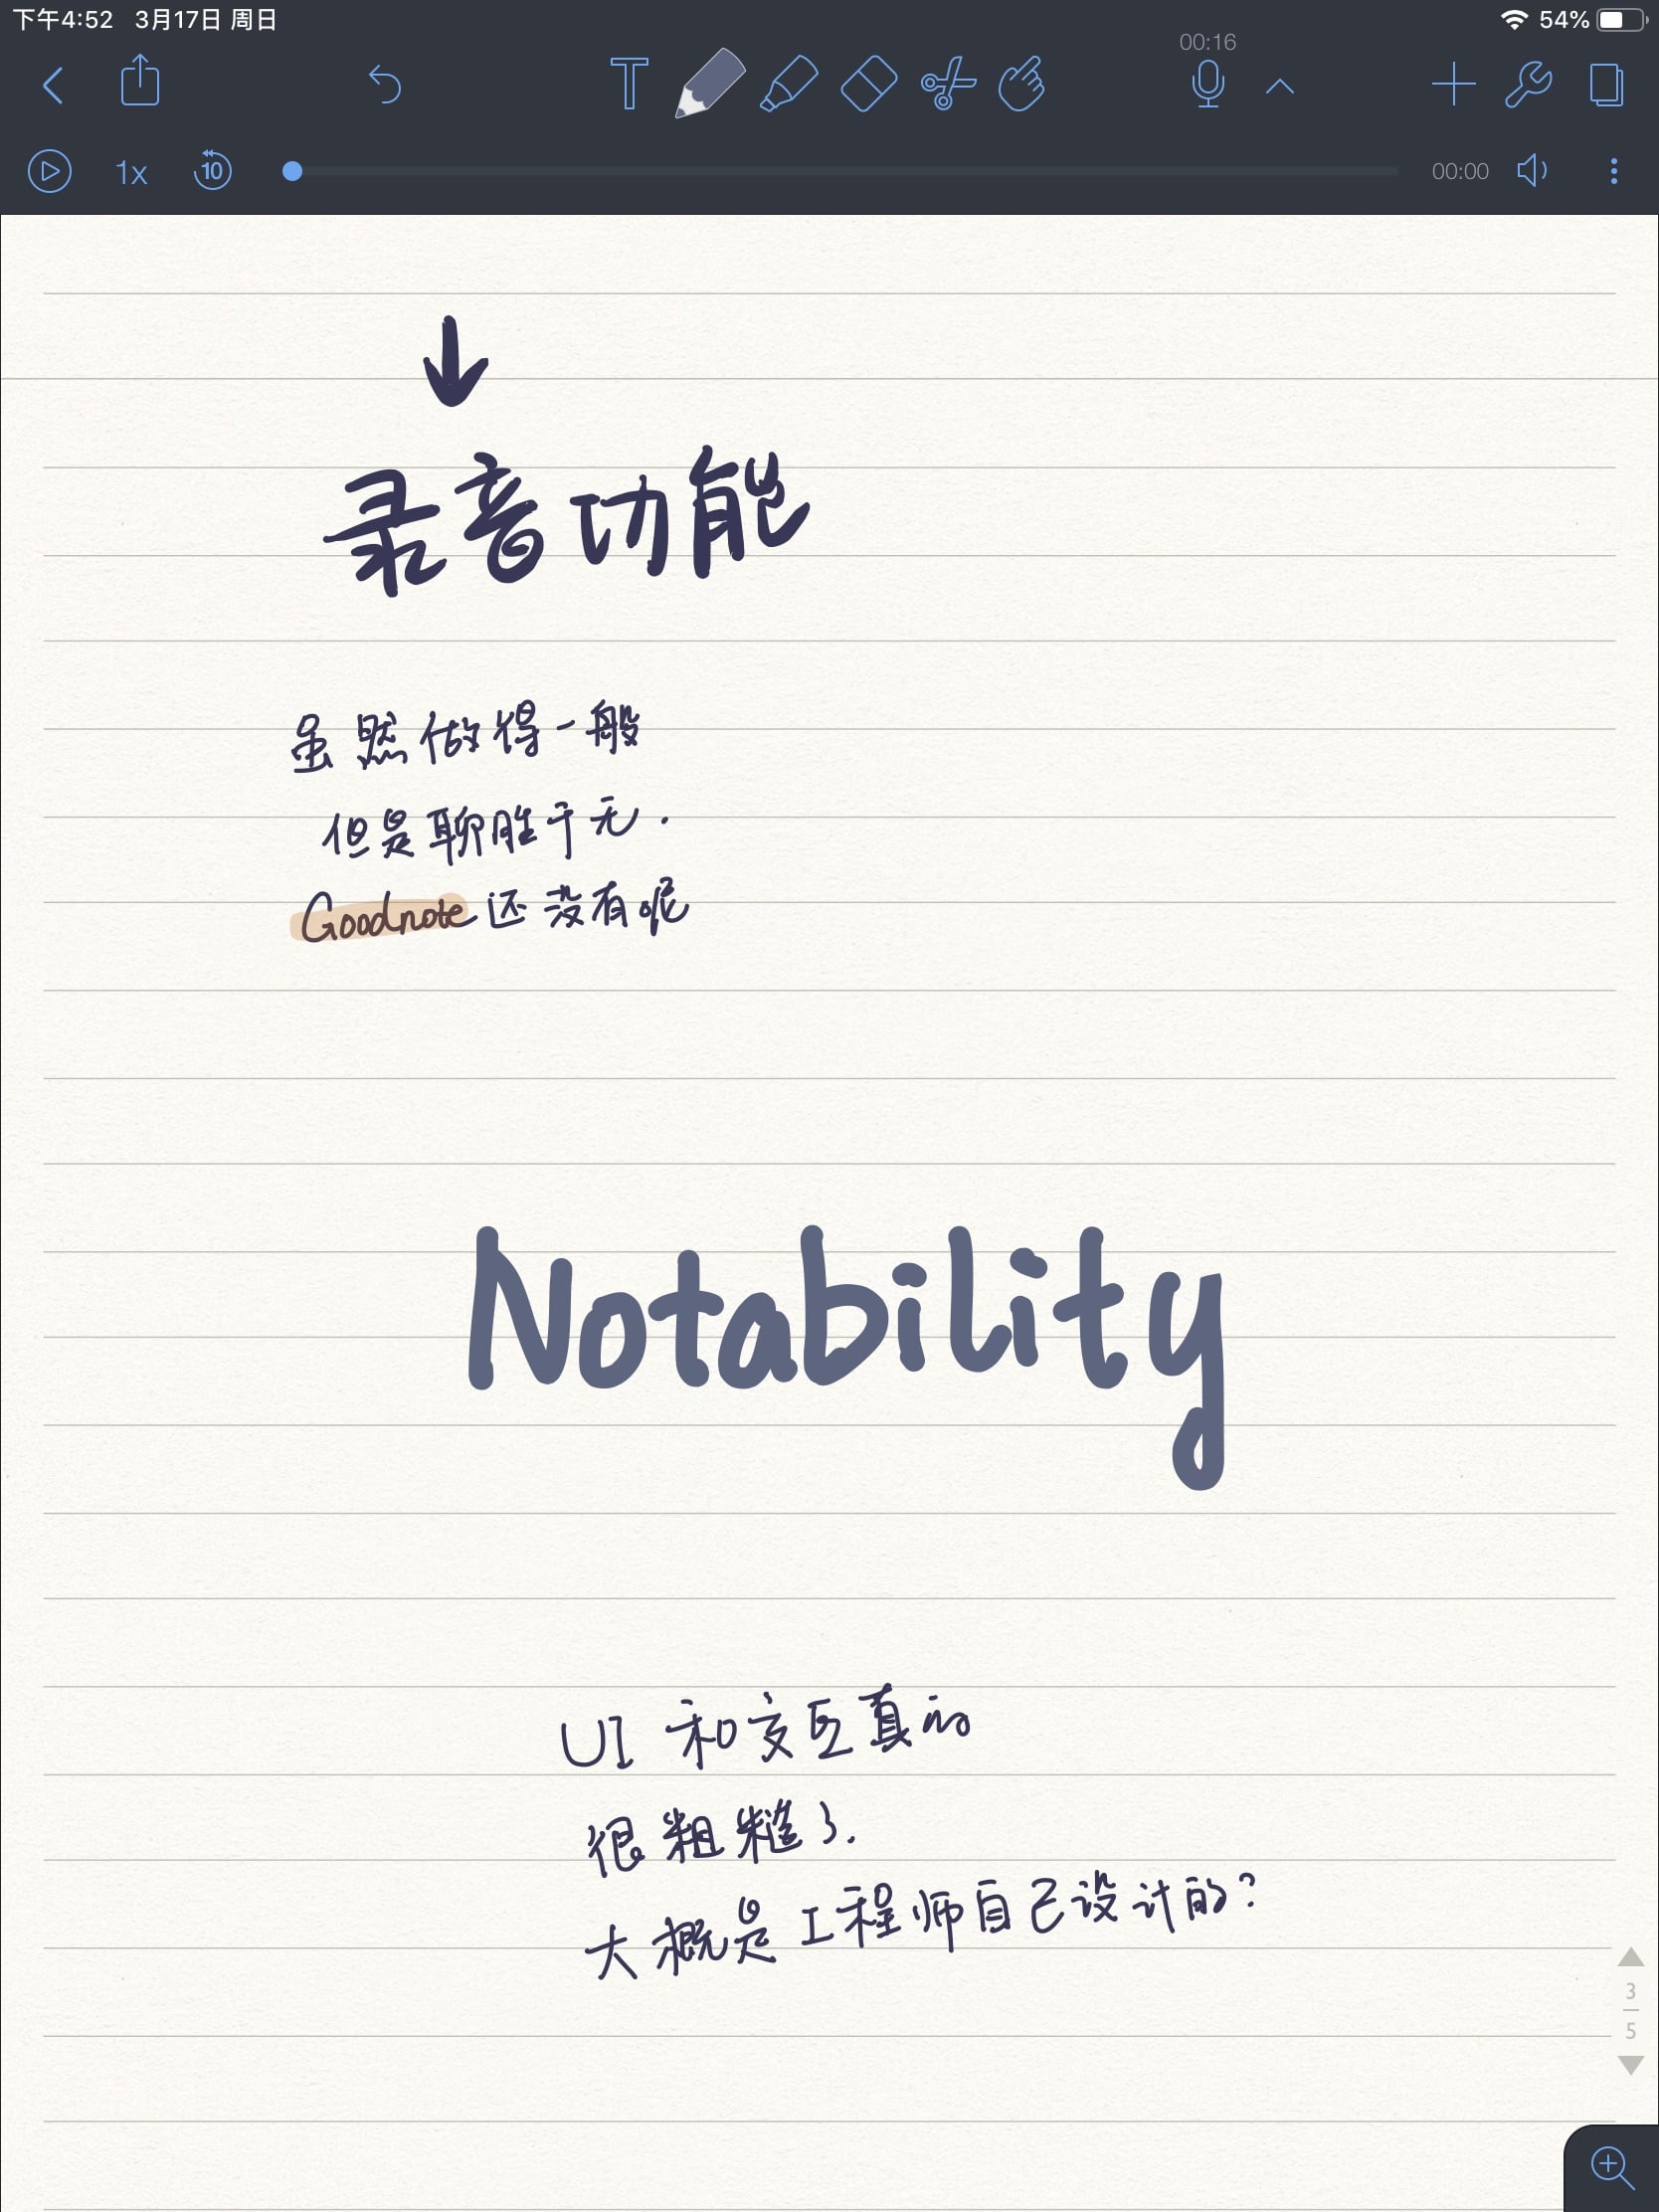 下午4:52 3月17日 周日 54%
00:16
1x 10 00:00
录音功能
虽然做得一般
但是聊胜于无.
Goodnote还没有呢
Notability
UI和交互真的
很粗糙了.
大概是工程师自己设计的?
3
5